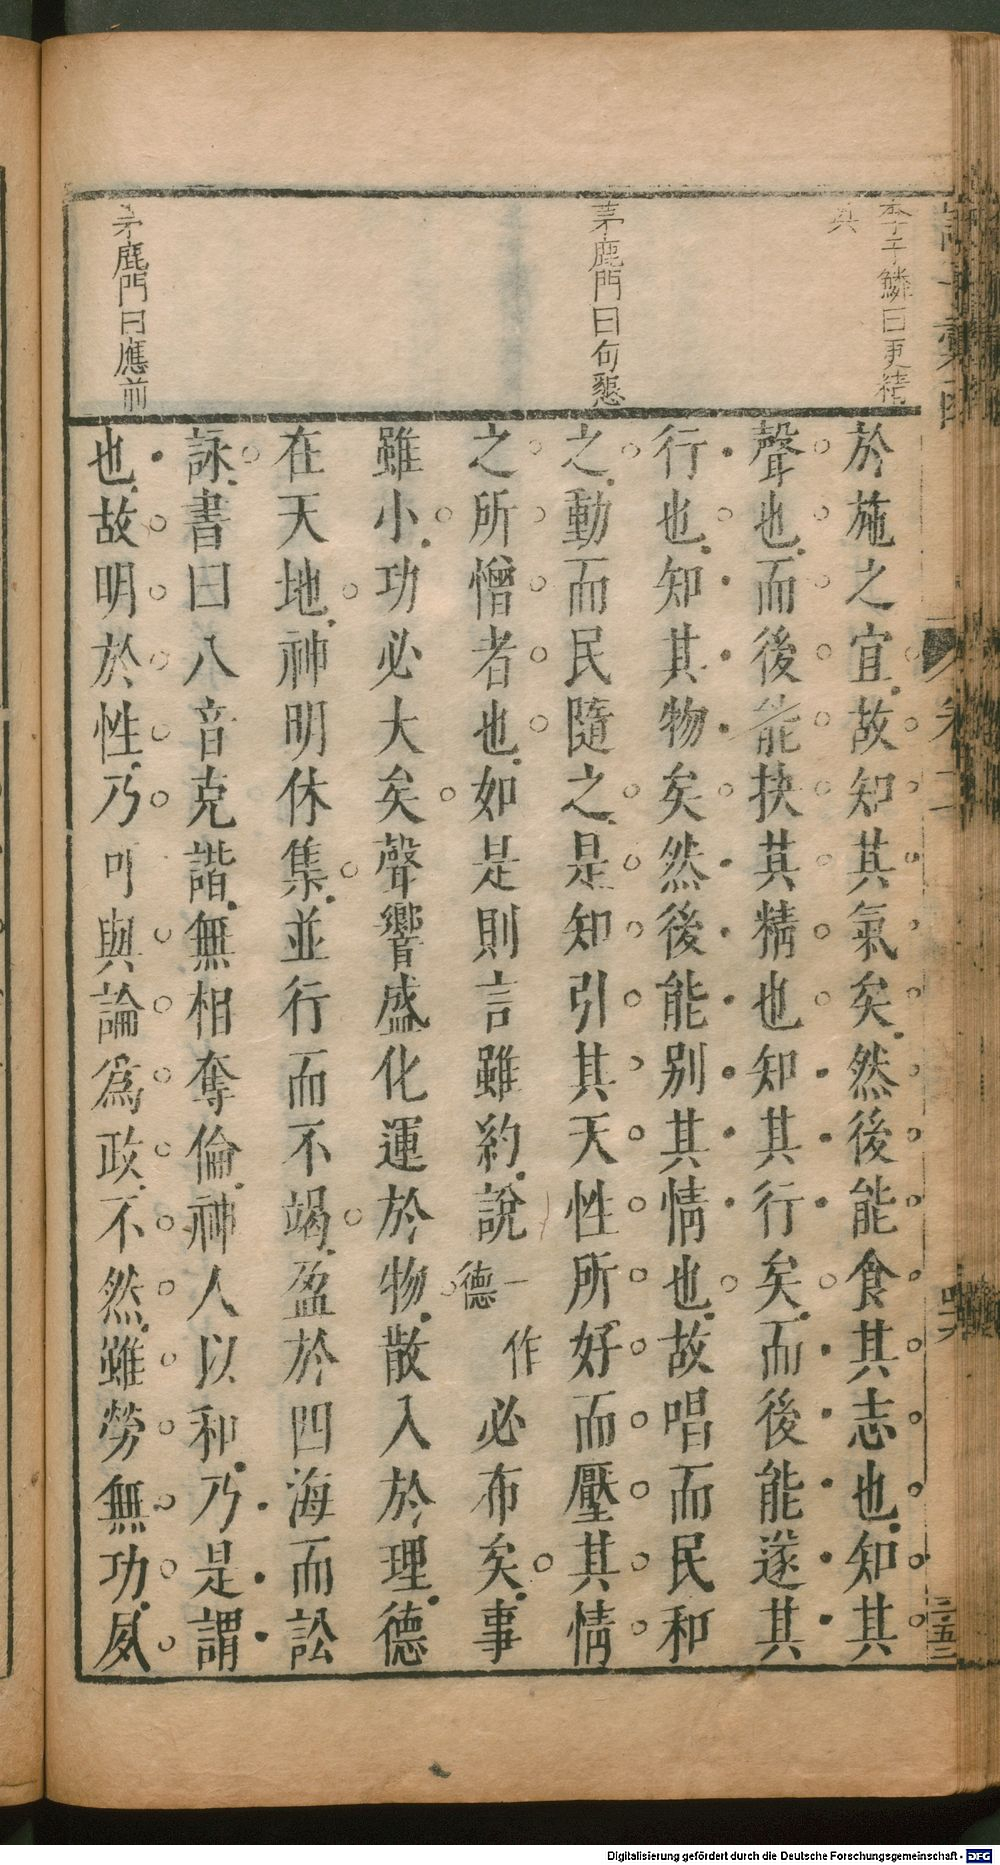 李于鱗曰更精
真
茅鹿門曰句懇
茅鹿門曰應前
於施之宜故知其氣矣然後能食其志也知其
聲也而後能抉其精也知其行矣而後能遂其
行也知其物矣然後能别其情也故唱而民和
之動而民隨之是知引其天性所好而壓其情
之所憎者也如是則言雖約說一作德必布矣事
雖小功必大矣聲響盛化運於物散入於理德
在天地神明休集並行而不竭盈於四海而訟
詠書曰八音克諧無相奪倫神人以和乃是謂
也故明於性乃可與論爲政不然雖勞無功夙
卷二
三五二
Digitalisierung gefördert durch die Deutsche Forschungsgemeinschaft - DFG